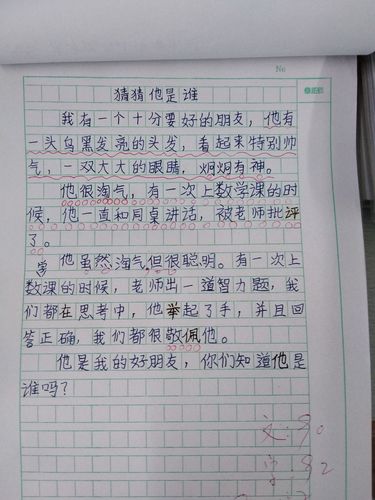 No
猜猜他是谁
我有一个十分要好的朋友，他有
一头乌黑发亮的头发，看起来特别帅
气，一双大大的眼睛，炯炯有神。
他很淘气，有一次上数学课的时
候，他一直和同桌讲话，被老师批评
了。
他虽然淘气但很聪明。有一次上
学
数课的时候，老师出一道智力题，我
们都在思考中，他举起了手，并且回
答正确，我们都很敬佩他。
他是我的好朋友，你们知道他是
谁吗？
文：90
字：92